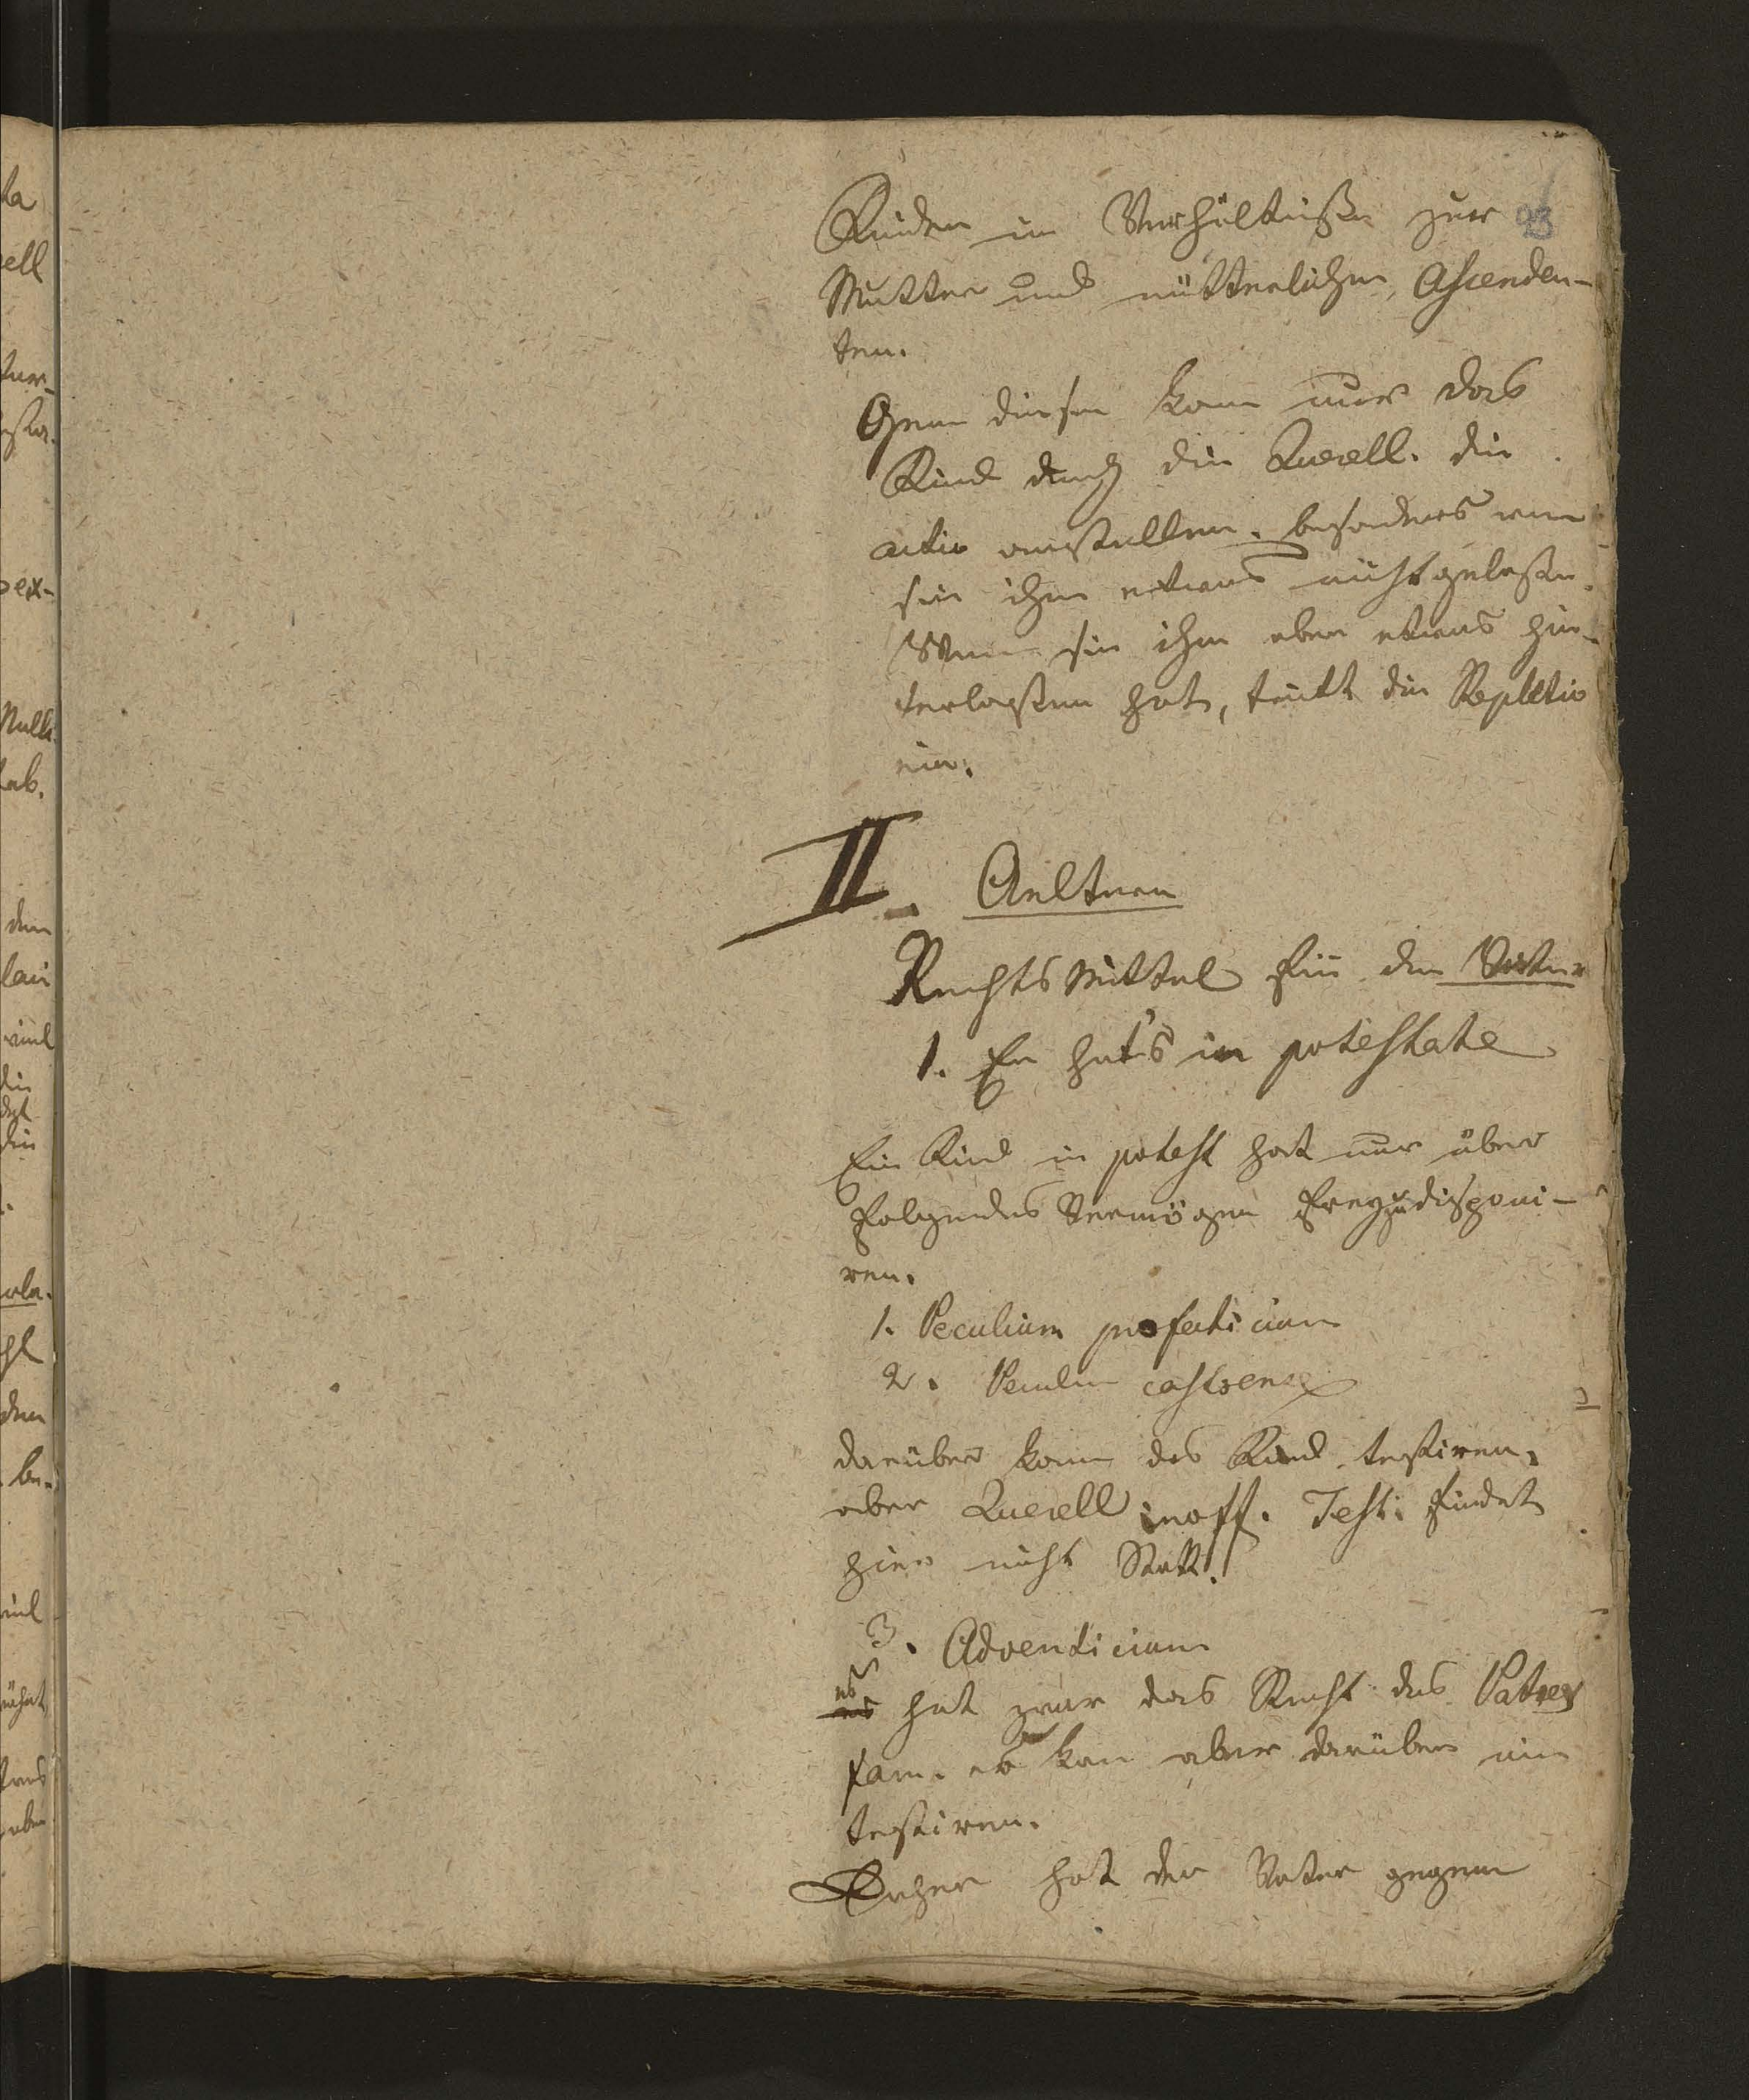 Kinder im Verhältniße zur 93
Mutter und mütterlichen Ascenden-
ten.
Gegen diesen kann nur das
Kind durch die Querell. die
actio anstellen. besonders wenn
sie ihm etwas nicht gelaßen.
Wenn sie ihm aber etwas hin-
terlaßen hat, tritt die Repletio
ein.
II. Aeltern
Rechts Mittel für den Vater
1. Er hat's in potestate
Ein Kind in potest hat nur über
folgendes Vermögen frey zu disponi-
ren.
1. Peculium profecticium
2. Peculium castrense
darüber kann das Kind testiren.
aber Querell inoff. Test. findet
hier nicht Statt.
3. Adventicium
es hat zwar das Recht des Patres
fam. es kan aber darüber nie
testiren.
Daher hat der Vater gegen